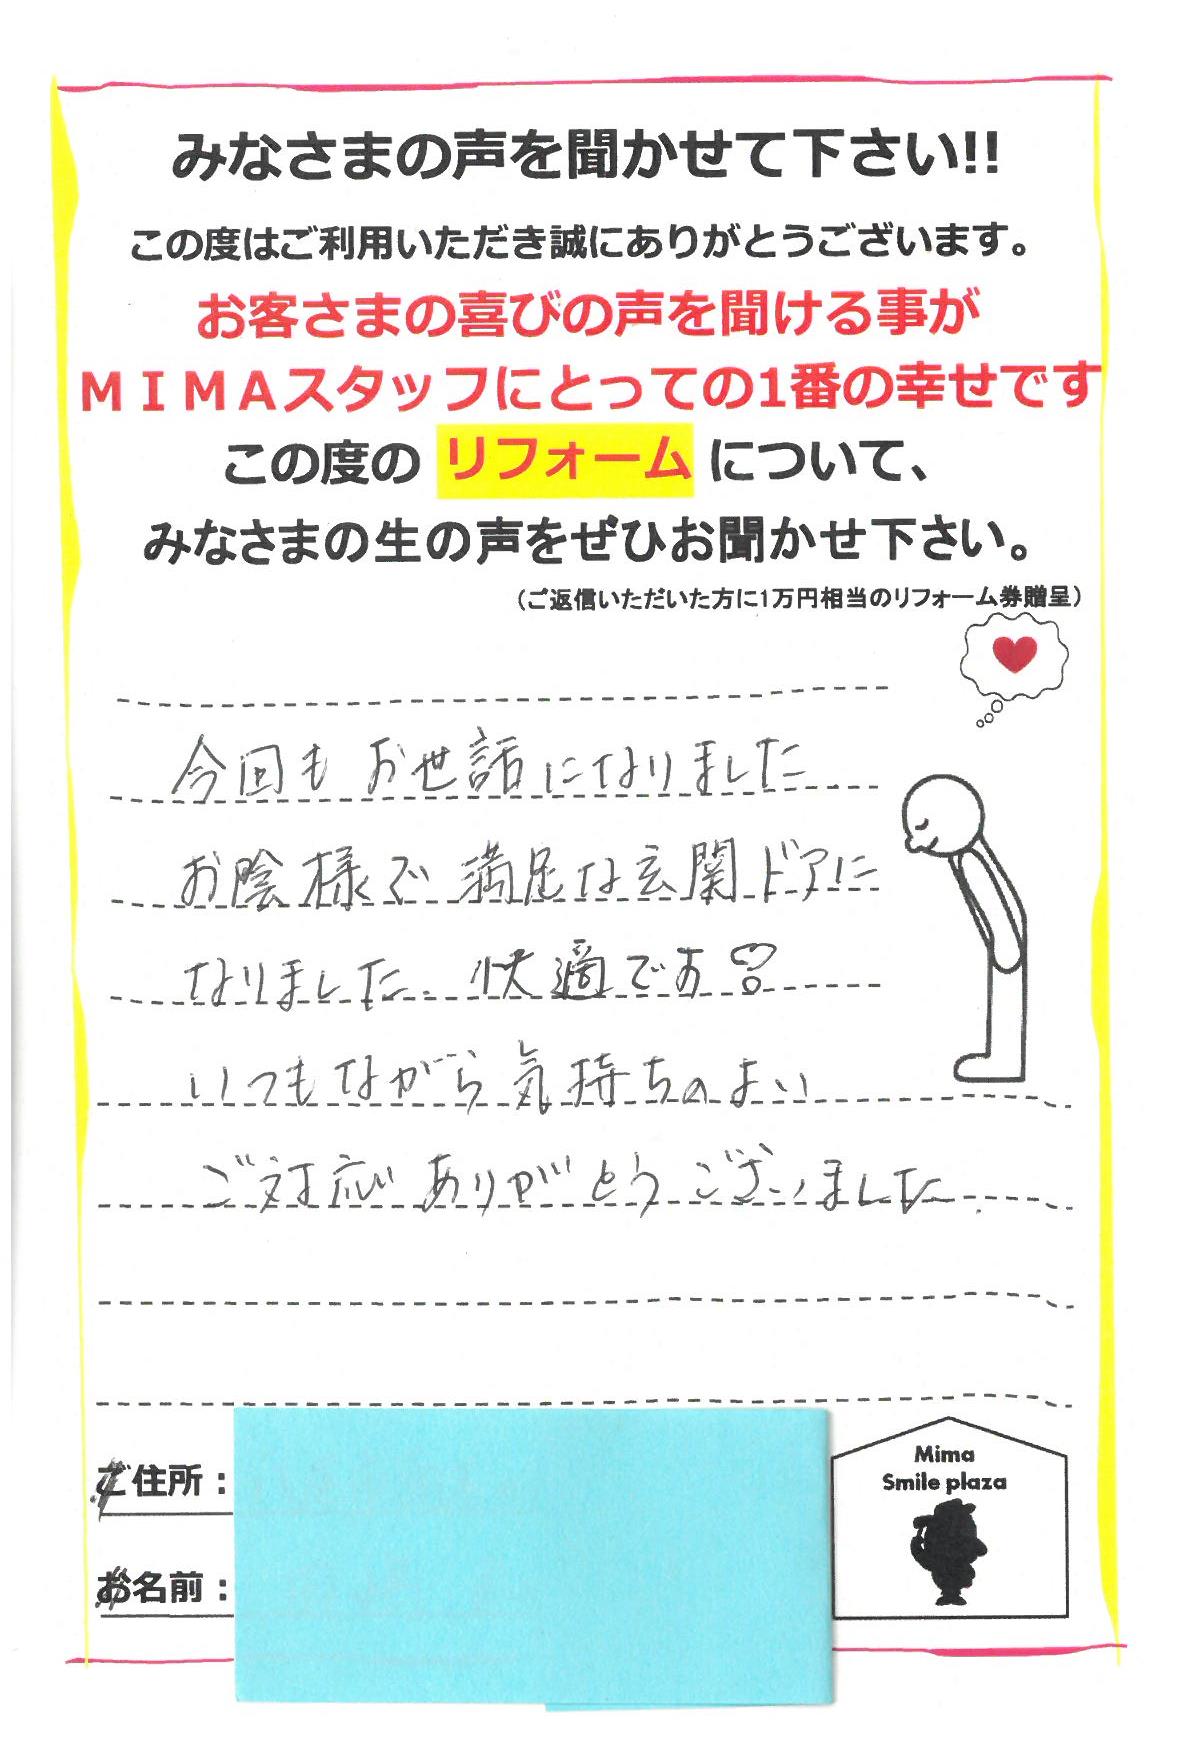 みなさまの声を聞かせて下さい!!
この度はご利用いただき誠にありがとうございます。
お客さまの喜びの声を聞ける事が
ＭＩＭＡスタッフにとっての1番の幸せです
この度の リフォーム について、
みなさまの生の声をぜひお聞かせ下さい。
（ご返信いただいた方に1万円相当のリフォーム券贈呈）
今回も お世話になりました
お陰様で 満足な玄関ドアに
なりました. 快適です
いつもながら気持ちのよい
ご対応 ありがとう ございました.
ご住所：
お名前：
Mima
Smile plaza